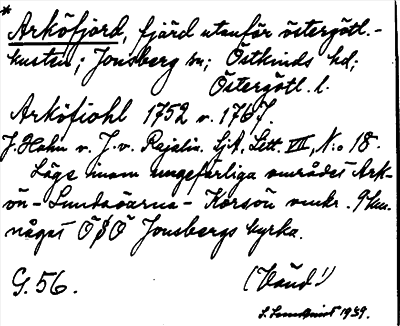 * Arköfjord, fjärd utanför östergötl.-
kusten; Jonsberg sn; Östkinds hd;
Östergötl. l.
Arköfiohl 1752 o. 1767.
J. Hahn o. J. v. Rajalin. SjA, Lett. VII, N:o 18.
Läge inom ungefärliga området Ark-
ön - Lundaöarna - Korsön omkr. 9 km.
något Ö S Ö Jonsbergs kyrka.
G. 56. (Vänd!)
1939.